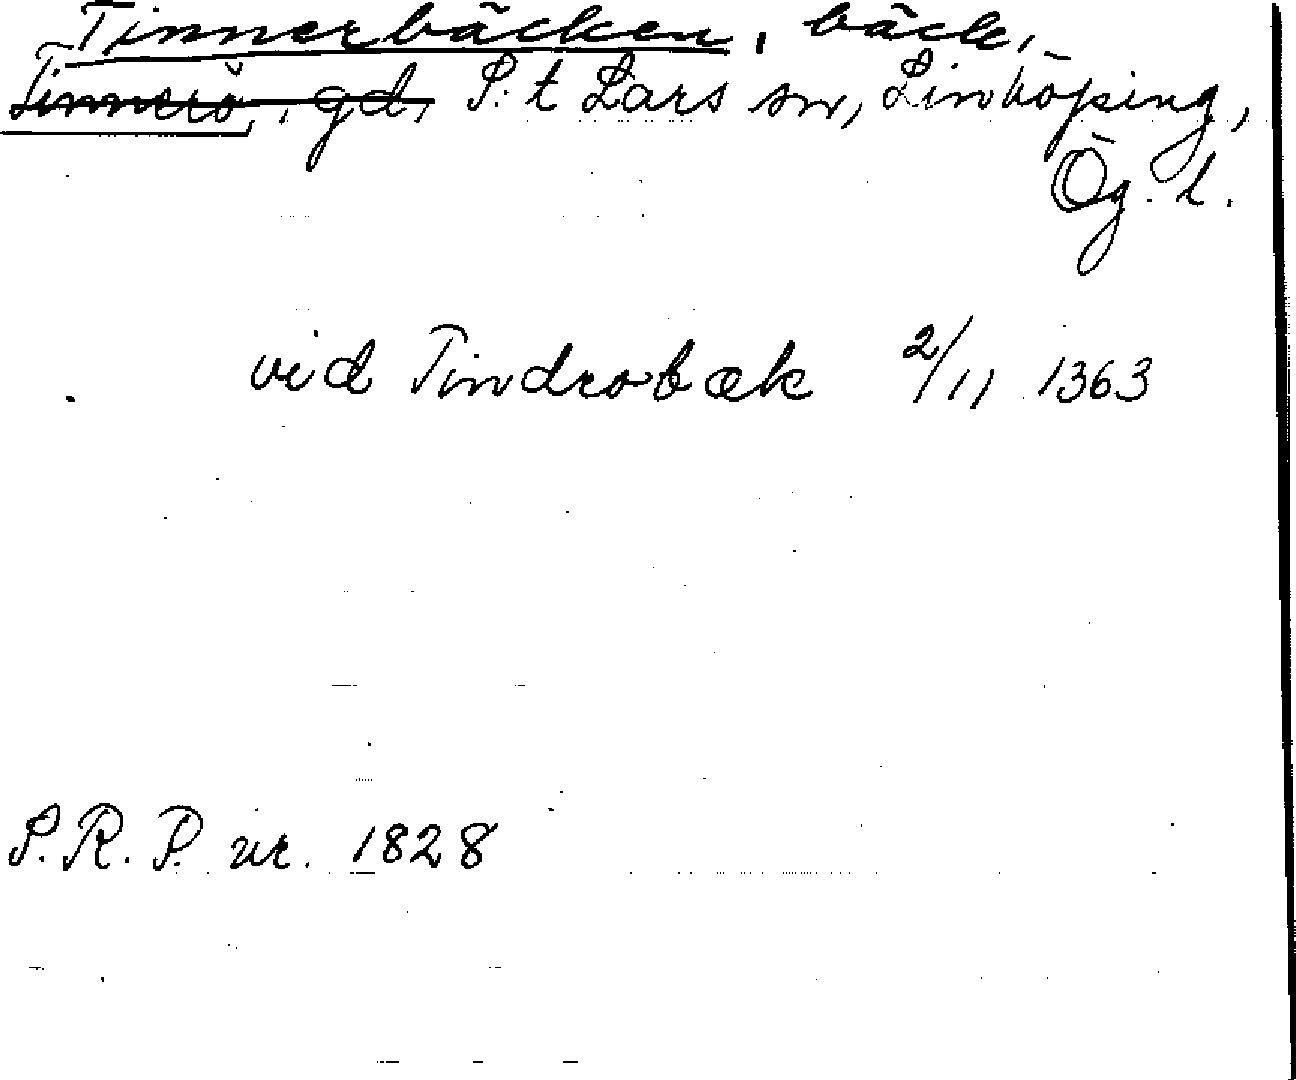 Tinnerbäcken, bäck,
Tinnerö, gd, S:t Lars sn, Linköping,
Ög. l.
vid Tindrobæk 2/11 1363
S.R.P. nr. 1828